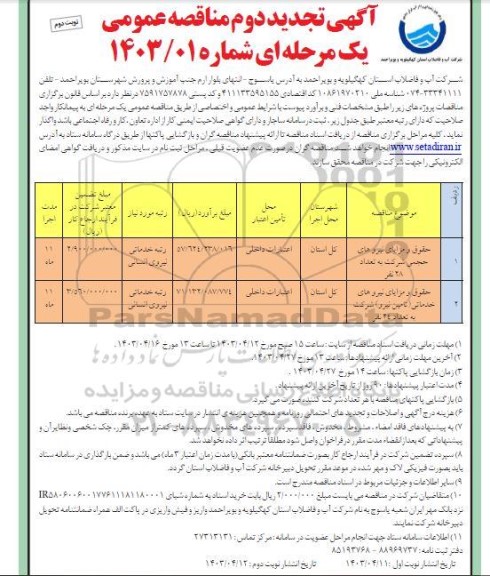 آگهی تجدید دوم مناقصه عمومی
یک مرحله ای شماره ۱۴۰۳/۰۱
نوبت دوم
شرکت آب و فاضلاب استان کهگیلویه و بویراحمد
شرکت آب و فاضلاب استان کهگیلویه و بویراحمد به آدرس یاسوج - انتهای بلوار ارم جنب آموزش و پرورش شهرستان بویراحمد - تلفن
۰۷۴-۳۳۳۴۱۱۱۱ شناسه ملی ۱۰۸۶۱۹۷۰۲۱۰ کد اقتصادی ۴۱۱۱۳۳۵۹۵۱۵۵ و کد پستی ۷۵۹۱۷۵۸۷۸۸ در نظر دارد بر اساس قانون برگزاری
مناقصات پروژه های زیر را طبق مشخصات فنی و برآورد پیوست با شرایط عمومی و اختصاصی از طریق مناقصه عمومی یک مرحله ای به پیمانکار واجد
صلاحیت که دارای رتبه معتبر طبق جدول زیر، ثبت در سامانه ساجار و دارای گواهی صلاحیت ایمنی کار از اداره تعاون، کار و رفاه اجتماعی باشد واگذار
نماید. کلیه مراحل برگزاری مناقصه از دریافت اسناد مناقصه تا ارائه پیشنهاد مناقصه گران و بازگشایی پاکتها از طریق درگاه سامانه ستاد به آدرس
www.setadiran.ir انجام خواهد شد. مناقصه گران در صورت عدم عضویت قبلی، مراحل ثبت نام در سایت مذکور و دریافت گواهی امضای
الکترونیکی را جهت شرکت در مناقصه محقق سازند.
ردیف موضوع مناقصه شهرستان محل اجرا محل تأمین اعتبار مبلغ برآورد (ریال) رتبه مورد نیاز مبلغ تضمین معتبر شرکت در فرآیند ارجاع کار (ریال) مدت اجرا
۱ حقوق و مزایای نیروهای حجمی شرکت به تعداد ۲۸ نفر کل استان اعتبارات داخلی رتبه خدماتی نیروی انسانی ۲/۹۰۰/۰۰۰/۰۰۰ ۱۱ ماه
۲ حقوق و مزایای نیروهای خدماتی (تامین نیرو) شرکت به تعداد نفر کل استان اعتبارات داخلی ۷۱/۱۳۲/۰۸۷/۷۷۴ رتبه خدماتی نیروی انسانی ۳/۵۶۰/۰۰۰/۰۰۰ ۱۱ ماه
۱) مهلت زمانی دریافت اسناد مناقصه از سایت: ساعت ۱۵ صبح مورخ ۱۴۰۳/۰۴/۱۲ تا ساعت ۱۳ مورخ ۱۴۰۳/۰۴/۱۶.
۲) آخرین مهلت زمانی ارائه پیشنهادها: ساعت ۱۳ مورخ ۱۴۰۳/۰۴/۲۷.
۳) زمان بازگشایی پاکتها: ساعت ۱۴ مورخ ۱۴۰۳/۰۴/۲۷.
۴) مدت اعتبار پیشنهادها: ۹۰ روز از تاریخ آخرین ارائه پیشنهاد
۵) بازگشایی پاکتهای مناقصه با هر تعداد شرکت کننده صورت می گیرد.
۶) هزینه درج آگهی و اصلاحات و تجدید های احتمالی روزنامه و همچنین هزینه ی انتشار در سایت ستاد به عهده برنده مناقصه می باشد.
۷) به پیشنهادهای فاقد امضاء، مشروط، مخدوش، فاقد سپرده، سپرده های مخدوش و سپرده های کمتر از میزان مقرر، چک شخصی و نظایر آن و
پیشنهاداتی که بعد از انقضاء مدت مقرر در فراخوان واصل شود مطلقاً ترتیب اثر داده نخواهد شد.
۸) سپرده تضمین شرکت در فرآیند ارجاع کار بصورت ضمانتنامه معتبر بانکی (با مدت زمان اعتبار ۳ ماه) می باشد و ضمن بارگذاری در سامانه ستاد
باید بصورت فیزیکی لاک و مهر شده در موعد مقرر تحویل دبیرخانه شرکت آب و فاضلاب استان گردد.
۹) سایر اطلاعات و جزئیات مربوط در اسناد مناقصه مندرج است.
۱۰) متقاضیان شرکت در مناقصه می بایست مبلغ ۲/۰۰۰/۰۰۰ ریال بابت خرید اسناد به شماره شبای IR۵۸۰۶۰۰۶۰۰۱۷۷۶۱۱۱۸۱۱۸۰۰۰۱
نزد بانک مهر ایران شعبه یاسوج به نام شرکت آب و فاضلاب استان کهگیلویه و بویراحمد واریز و فیش واریزی در پاکت الف همراه ضمانتنامه تحویل
دبیرخانه شرکت نمایند.
۱۱) اطلاعات سامانه ستاد جهت انجام مراحل عضویت در سامانه: مرکز تماس: ۲۷۳۱۳۱۳۱
دفتر ثبت نامه: ۸۸۹۶۹۷۳۷ - ۸۵۱۹۳۷۶۸
تاریخ انتشار نوبت اول: ۱۴۰۳/۰۴/۱۱ تاریخ انتشار نوبت دوم: ۱۴۰۳/۰۴/۱۲
ParsNamadData